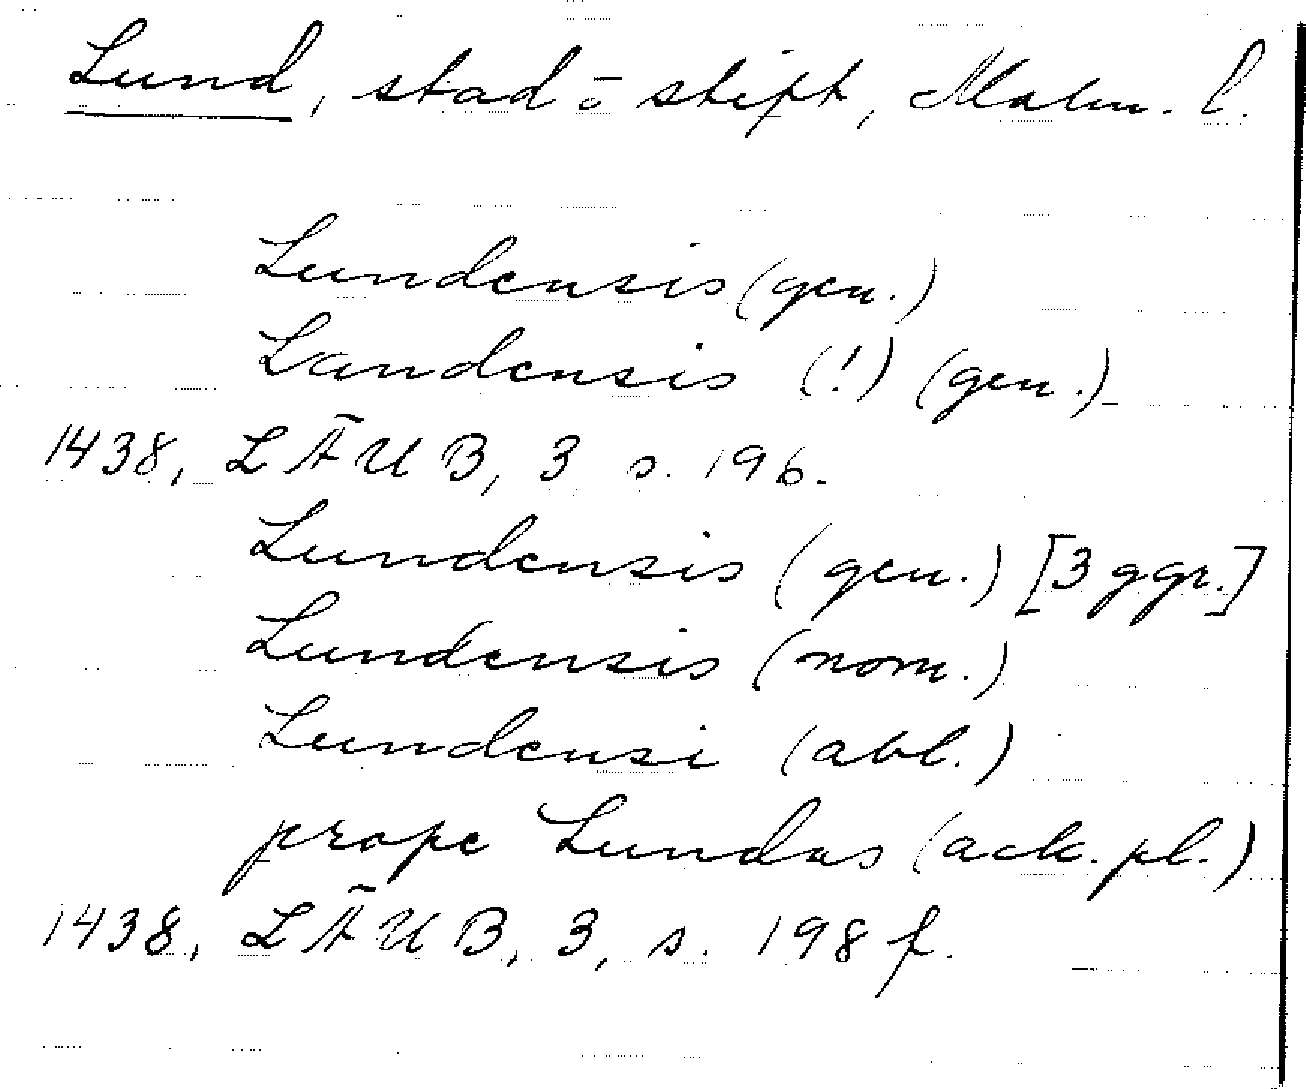 Lund, stad o stift, Malm. l.
Lundensis (gen.)
Landensis (!) (gen.)
1438, LÄUB, 3 s. 196.
Lundensis (gen.) [3 ggr.]
Lundensis (nom.)
Lundensi (abl.)
prope Lundas (ack. pl.)
1438, LÄUB, 3, s. 198 f.